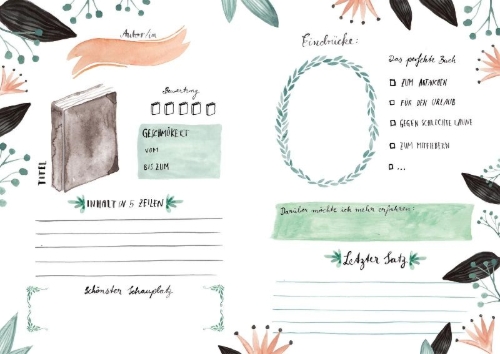 Autor/in
Bewertung
GESCHMÖKERT
VOM
BIS ZUM
TITEL
INHALT IN 5 ZEILEN
Schönster Schauplatz
Eindrücke:
Das perfekte Buch
ZUM ANTAUCHEN
FÜR DEN URLAUB
GEGEN SCHLECHTE LAUNE
ZUM MITFIEBERN
...
Darüber möchte ich mehr erfahren:
Letzter Satz